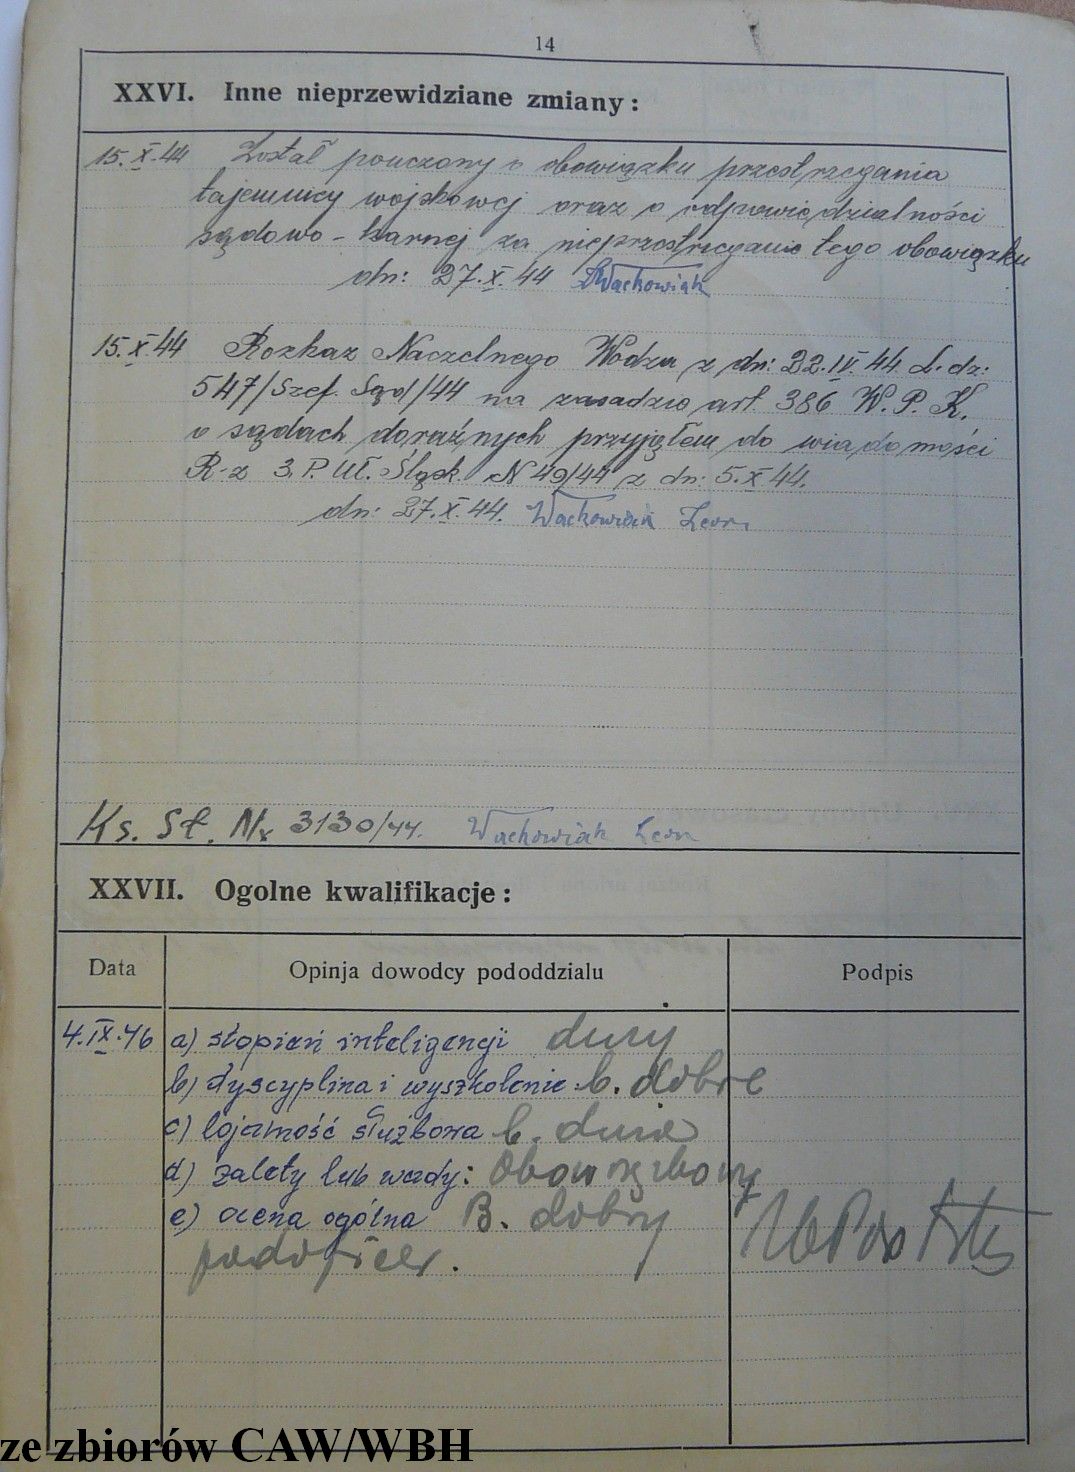 14
XXVI. Inne nieprzewidziane zmiany:
15.X.44 Został pouczony o obowiązku przestrzegania
tajemnicy wojskowej oraz o odpowiedzialności
sądowo-karnej za nieprzestrzeganie tego obowiązku
dn: 27.X.44 Wachowiak
15.X.44 Rozkaz Naczelnego Wodza z dn: 22.IV.44 L.dz:
547/Szef. Sąd/44 na zasadzie art. 386 W.P.K.
o sądach doraźnych przyjąłem do wiadomości
R-z 3.P.Uł. Śląsk. N 49/44 z dn: 5.X.44.
dn: 27.X.44. Wachowiak Leon
Ks. St. Nr 3130/44. Wachowiak Leon
XXVII. Ogolne kwalifikacje:
Data Opinja dowodcy pododdzialu Podpis
4.IX.46 a) stopień inteligencji duży
b) dyscyplina i wyszkolenie b. dobre
c) lojalność służbowa b. duża
d) zalety lub wady: Obowiązkowy
e) ocena ogólna B. dobry
podoficer.
ze zbiorów CAW/WBH